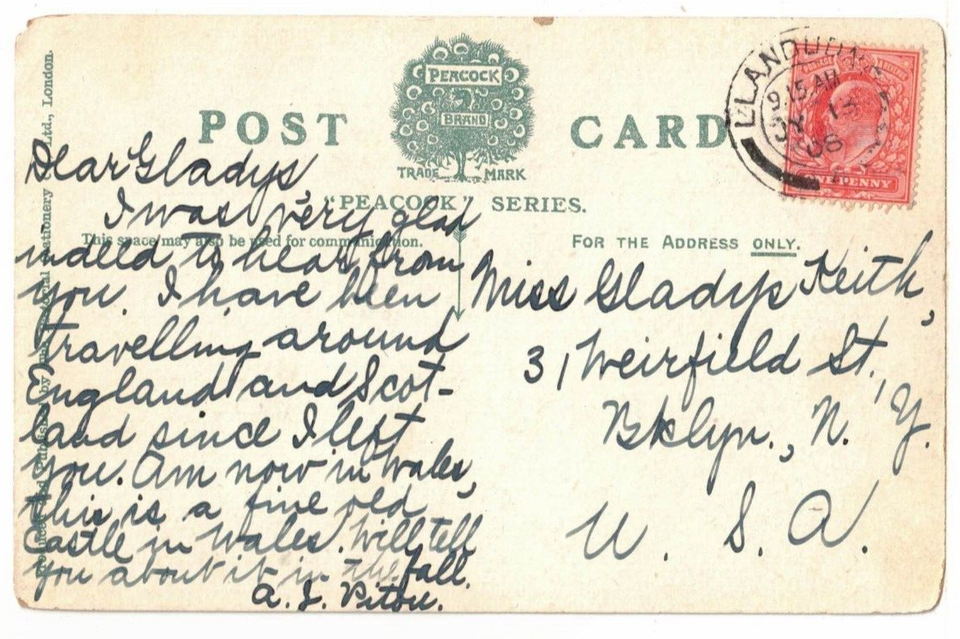 PEACOCK
BRAND
TRADE MARK
POST CARD
"PEACOCK" SERIES.
This space may also be used for communication.
FOR THE ADDRESS ONLY.
Ltd., London.
LLANDUDNO
9.15 AM
13
08
ONE PENNY
Dear Gladys,
I was very glad
indeed to hear from
you. I have been
travelling around
England and Scot-
land since I left
you. Am now in Wales,
this is a fine old
Castle in Wales. Will tell
you about it in the fall.
Miss Gladys Keith,
31 Weirfield St.,
Bklyn., N. Y.
U. S. A.